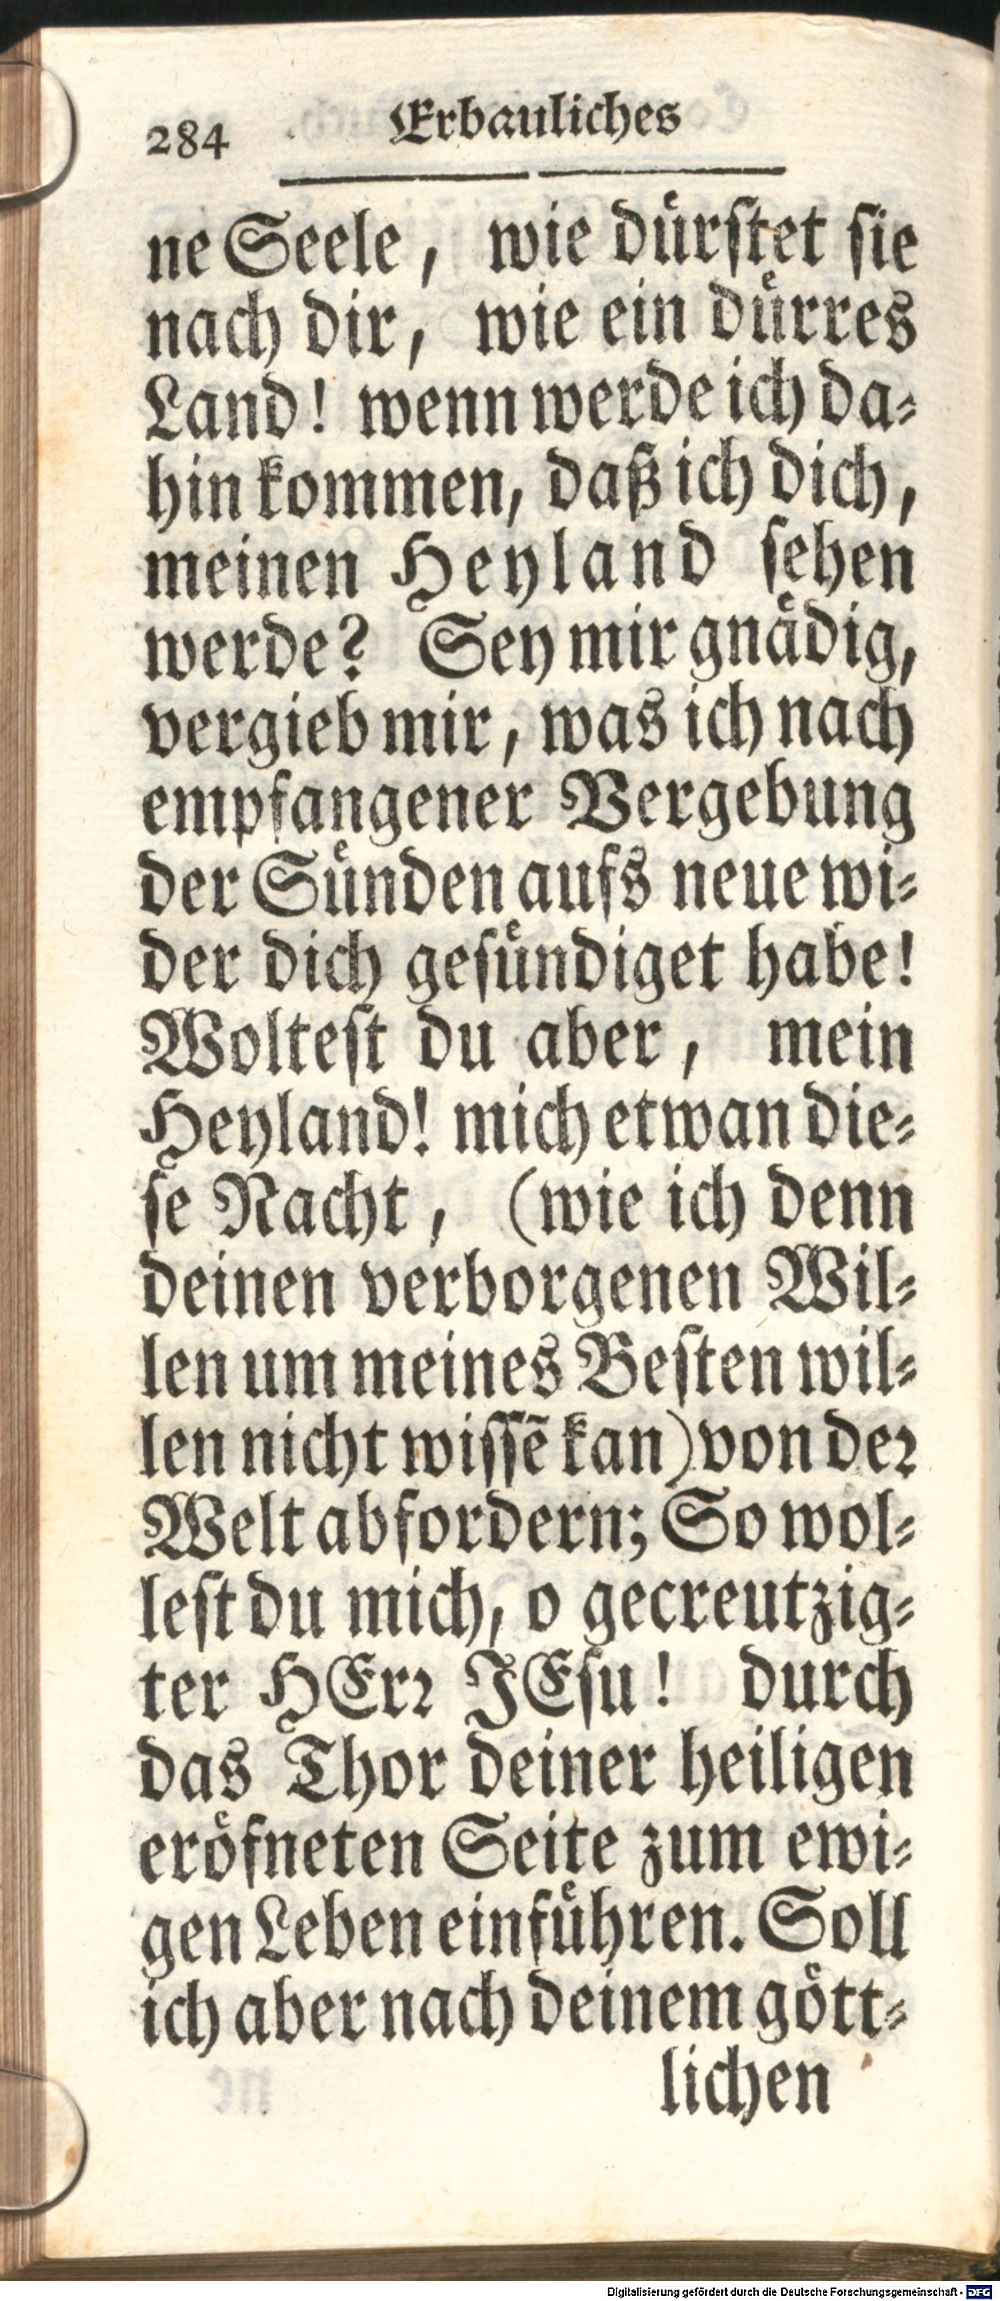 284 Erbauliches
ne Seele, wie dürstet sie
nach dir, wie ein dürres
Land! wenn werde ich da-
hin kommen, daß ich dich,
meinen Heyland sehen
werde? Sey mir gnädig,
vergieb mir, was ich nach
empfangener Vergebung
der Sünden aufs neue wi-
der dich gesündiget habe!
Woltest du aber, mein
Heyland! mich etwan die-
se Nacht, (wie ich denn
deinen verborgenen Wil-
len um meines Besten wil-
len nicht wissē kan) von der
Welt abfordern; So wol-
lest du mich, o gecreutzig-
ter HErr JEsu! durch
das Thor deiner heiligen
eröfneten Seite zum ewi-
gen Leben einführen. Soll
ich aber nach deinem gött-
lichen
Digitalisierung gefördert durch die Deutsche Forschungsgemeinschaft - DFG